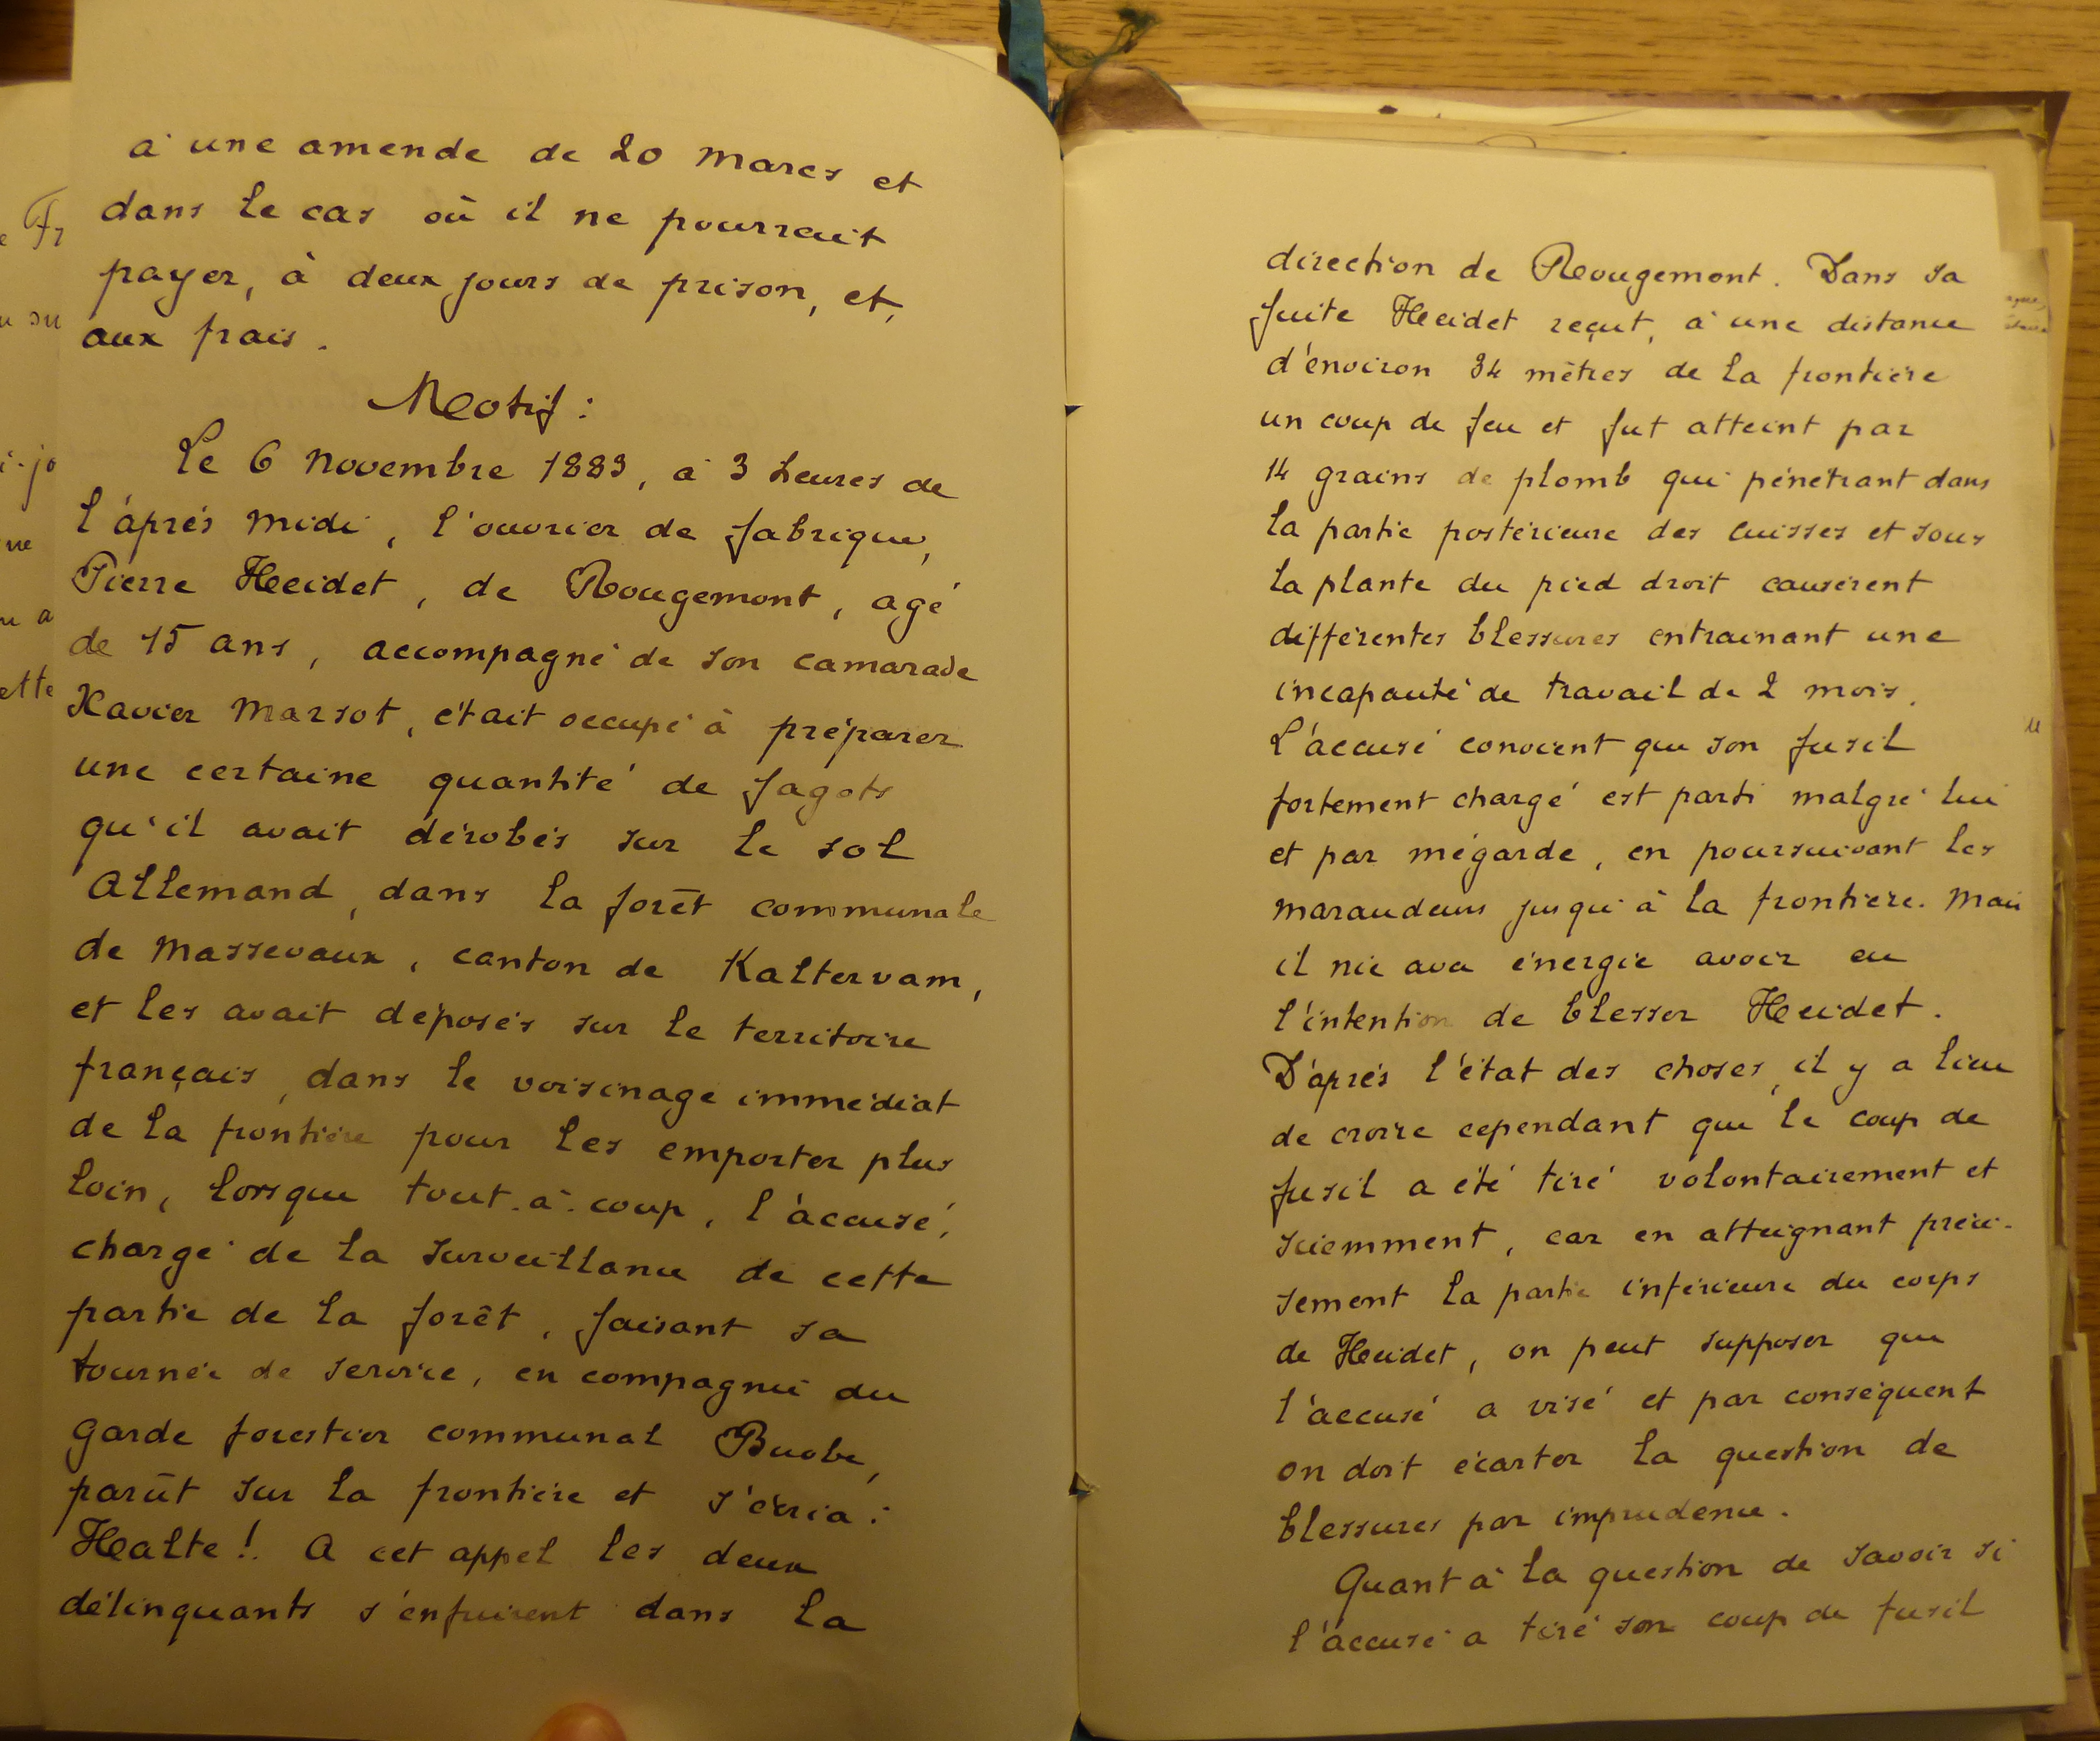 à une amende de 20 marcs et
dans le cas où il ne pourrait
payer, à deux jours de prison, et,
aux frais.
Motif :
Le 6 novembre 1883, à 3 heures de
l'après midi, l'ouvrier de fabrique,
Pierre Heidet, de Rougemont, agé
de 15 ans, accompagné de son camarade
Xavier Marsot, était occupé à préparer
une certaine quantité de fagots
qu'il avait dérobés sur le sol
Allemand, dans la forêt communale
de Massevaux, canton de Kaltervam,
et les avait déposés sur le territoire
français, dans le voisinage immédiat
de la frontière pour les emporter plus
loin, lorsque tout-à-coup, l'accusé,
chargé de la surveillance de cette
partie de la forêt, faisant sa
tournée de service, en compagnie du
garde forestier communal Buobe,
parût sur la frontière et s'écria :
Halte! A cet appel les deux
délinquants s'enfuirent dans la
direction de Rougemont. Dans sa
fuite Heidet reçut, à une distance
d'environ 34 mètres de la frontière
un coup de feu et fut atteint par
14 grains de plomb qui pénétrant dans
la partie postérieure des cuisses et sous
la plante du pied droit causèrent
différentes blessures entrainant une
incapacité de travail de 2 mois.
L'accusé convient que son fusil
fortement chargé est parti malgré lui
et par mégarde, en poursuivant les
maraudeurs jusqu'à la frontière. Mais
il nie avec énergie avoir eu
l'intention de blesser Heidet.
D'après l'état des choses, il y a lieu
de croire cependant que le coup de
fusil a été tiré volontairement et
sciemment, car en atteignant préci-
sement la partie inférieure du corps
de Heidet, on peut supposer que
l'accusé a visé et par conséquent
on doit écarter la question de
blessures par imprudence.
Quant à la question de savoir si
l'accusé a tiré son coup de fusil